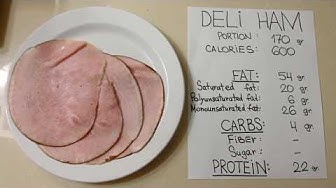 DELI HAM
PORTION: 170 gr
CALORIES: 600
FAT: 54 gr
Saturated fat: 20 gr
Polyunsaturated fat: 6 gr
Monounsaturated fat: 26 gr
CARBS: 4 gr
FIBER: -
Sugar: -
PROTEIN: 22 gr